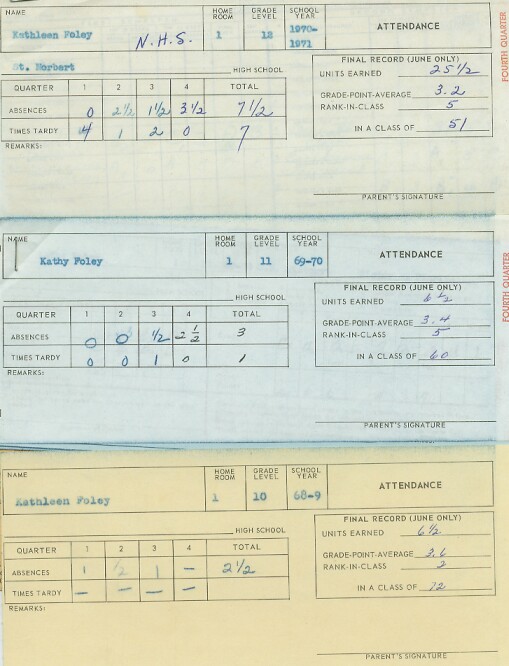 NAME HOME ROOM GRADE LEVEL SCHOOL YEAR ATTENDANCE
Kathleen Foley N.H.S. 1 12 1970-1971
FOURTH QUARTER
St. Norbert HIGH SCHOOL
FINAL RECORD (JUNE ONLY)
UNITS EARNED 25 1/2
GRADE-POINT-AVERAGE 3.2
RANK-IN-CLASS 5
IN A CLASS OF 51
QUARTER 1 2 3 4 TOTAL
ABSENCES 0 2 1/2 1 1/2 3 1/2 7 1/2
TIMES TARDY 4 1 2 0 7
REMARKS:
PARENT'S SIGNATURE
NAME HOME ROOM GRADE LEVEL SCHOOL YEAR ATTENDANCE
Kathy Foley 1 11 69-70
FOURTH QUARTER
HIGH SCHOOL
FINAL RECORD (JUNE ONLY)
UNITS EARNED 6 1/2
GRADE-POINT-AVERAGE 3.4
RANK-IN-CLASS 5
IN A CLASS OF 60
QUARTER 1 2 3 4 TOTAL
ABSENCES 0 0 1/2 2 1/2 3
TIMES TARDY 0 0 1 0 1
REMARKS:
PARENT'S SIGNATURE
NAME HOME ROOM GRADE LEVEL SCHOOL YEAR ATTENDANCE
Kathleen Foley 1 10 68-9
HIGH SCHOOL
FINAL RECORD (JUNE ONLY)
UNITS EARNED 6 1/2
GRADE-POINT-AVERAGE 3.6
RANK-IN-CLASS 2
IN A CLASS OF 72
QUARTER 1 2 3 4 TOTAL
ABSENCES 1 1/2 1 - 2 1/2
TIMES TARDY - - - -
REMARKS:
PARENT'S SIGNATURE